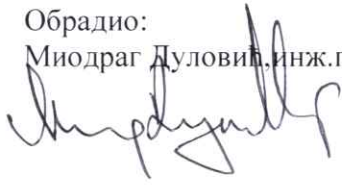 Обрадио:
Миодраг Дуловић,инж.г